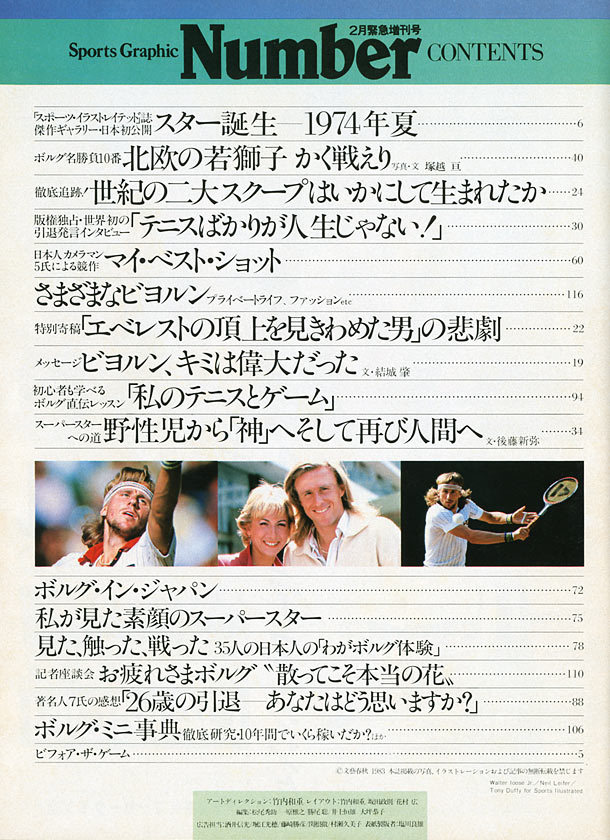 2月緊急増刊号
Sports Graphic Number CONTENTS
「スポーツ・イラストレイテッド」誌・
傑作ギャラリー・日本初公開 スター誕生—1974年夏 6
ボルグ名勝負10番 北欧の若獅子 かく戦えり 写真・文 塚越 亘 40
徹底追跡! 世紀の二大スクープはいかにして生まれたか 24
版権独占・世界初の
引退発言インタビュー 「テニスばかりが人生じゃない!」 30
日本人カメラマン
5氏による競作 マイ・ベスト・ショット 60
さまざまなビヨルン プライベートライフ、ファッションetc 116
特別寄稿 「エベレストの頂上を見きわめた男」の悲劇 22
メッセージ ビヨルン、キミは偉大だった 文・結城 肇 19
初心者も学べる
ボルグ直伝レッスン 「私のテニスとゲーム」 94
スーパースター
への道 野性児から「神」へそして再び人間へ 文・後藤新弥 34
ボルグ・イン・ジャパン 72
私が見た素顔のスーパースター 75
見た、触った、戦った 35人の日本人の「わがボルグ体験」 78
記者座談会 お疲れさまボルグ〝散ってこそ本当の花〟 110
著名人7氏の感想 「26歳の引退 あなたはどう思いますか?」 88
ボルグ・ミニ事典 徹底研究・10年間でいくら稼いだか? ほか 106
ビフォア・ザ・ゲーム 5
©文藝春秋 1983 本誌掲載の写真、イラストレーションおよび記事の無断転載を禁じます
Walter Iooss Jr./Neil Leifer/
Tony Duffy for Sports Illustrated
アートディレクション:竹内和重、レイアウト:竹内和重、坂田政則、花村 広